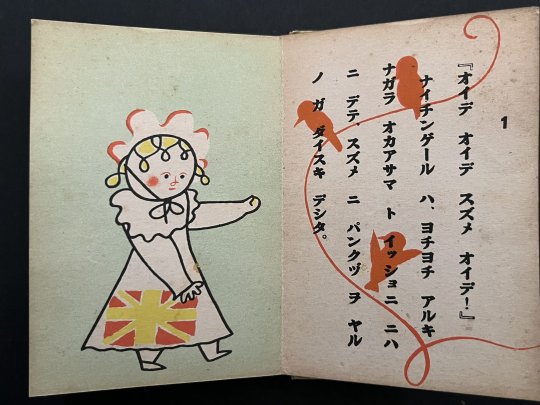 1
『オイデ オイデ スズメ オイデ!』
ナイチンゲール ハ、ヨチヨチ アルキ
ナガラ オカアサマ ト イッショニ ニハ
ニ デテ、スズメ ニ パンクヅ ヲ ヤル
ノ ガ ダイスキ デシタ。